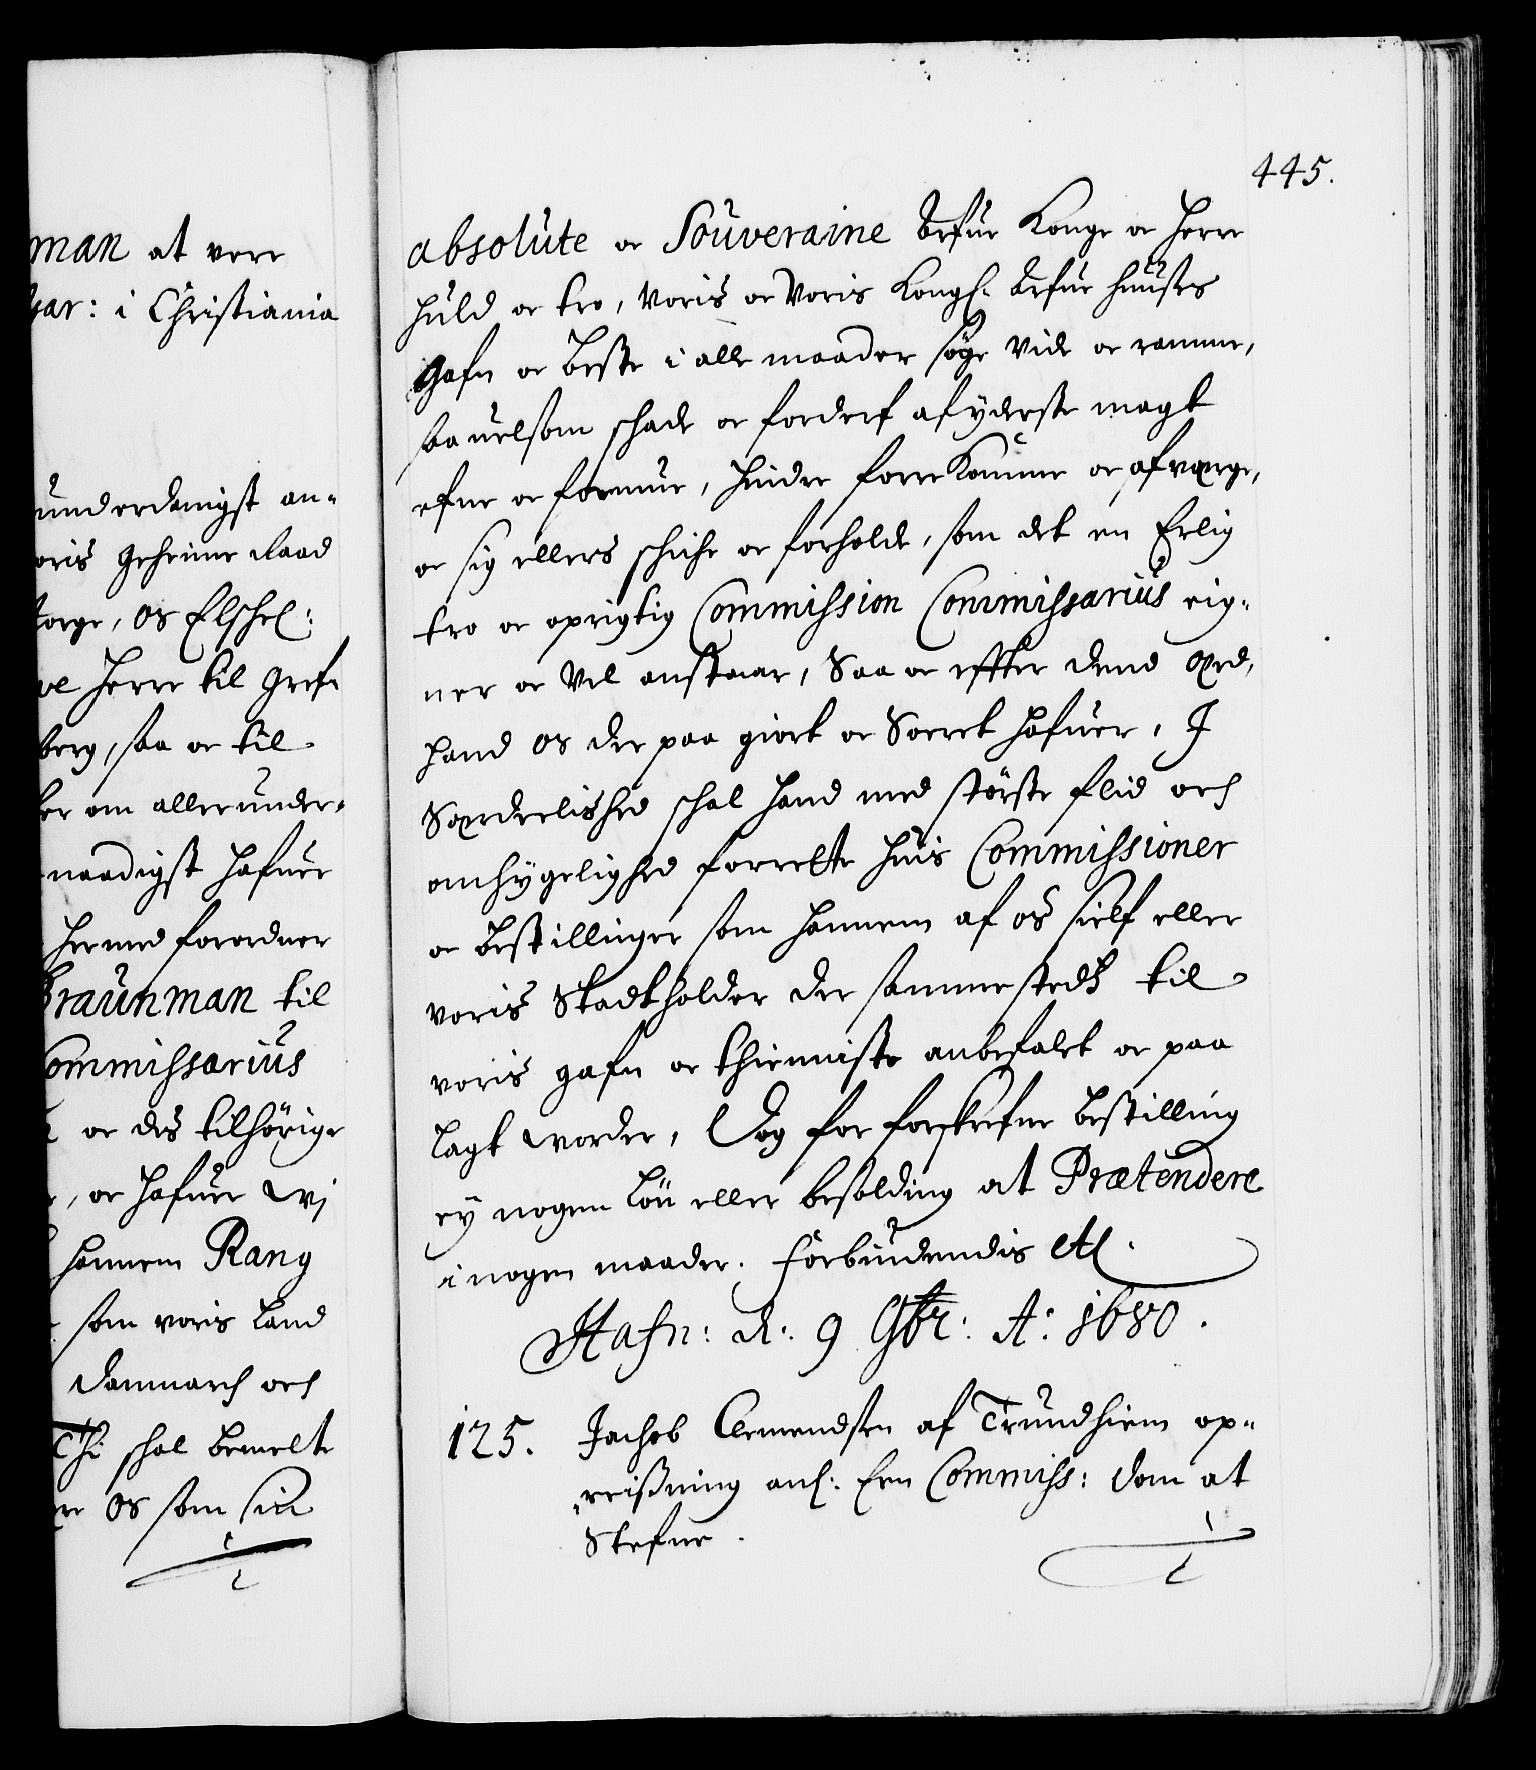 man at vere
gar: i Christiania
underdanigst an-
oris Geheime Raad
torge, os Elschel:
ve Herre til Gref
berg, saa oc til
er om allerunder-
naadigst hafuer
hermed forordner
Braunman til
Commissarius
oc des tilhörige
, oc hafuer wj
hannem Rang
som voris Land
Danmarch och
Thi schal bemelte
er os som sin
445.
absolute oc Souveraine Arfue Konge oc Herre
huld oc tro, voris oc voris Kongl: Arfue Huuses
gafn oc beste i alle maader söge vide oc ramme,
saauelsom schade oc forderf af yderste magt
efne oc formue, hindre forrekomme oc afværge,
oc sig ellers schiche oc forholde, som det en Erlig
tro oc oprigtig Commission Commissarius eig-
ner oc vel anstaar, Saa oc effter dend Æed,
hand os der paa giort oc Soeret hafuer, I
Særdeelished schal hand med störste flid och
omhygelighed forrette huis Commissioner
oc bestillinger som hannem af os sielf eller
voris Stadtholder der sammestedtz til
voris gafn oc thienniste anbefalet oc paa
lagt worder, Dog for forskrefne bestilling
ey nogen Lön eller besolding at Prætendere
i nogen maader. Forbiudendis etc.
Hafn: d: 9 9br: A: 1680.
125. Jachob Clemendsen af Trundhiem op-
reisning anl: Een Commiss: dom at
Stefne.